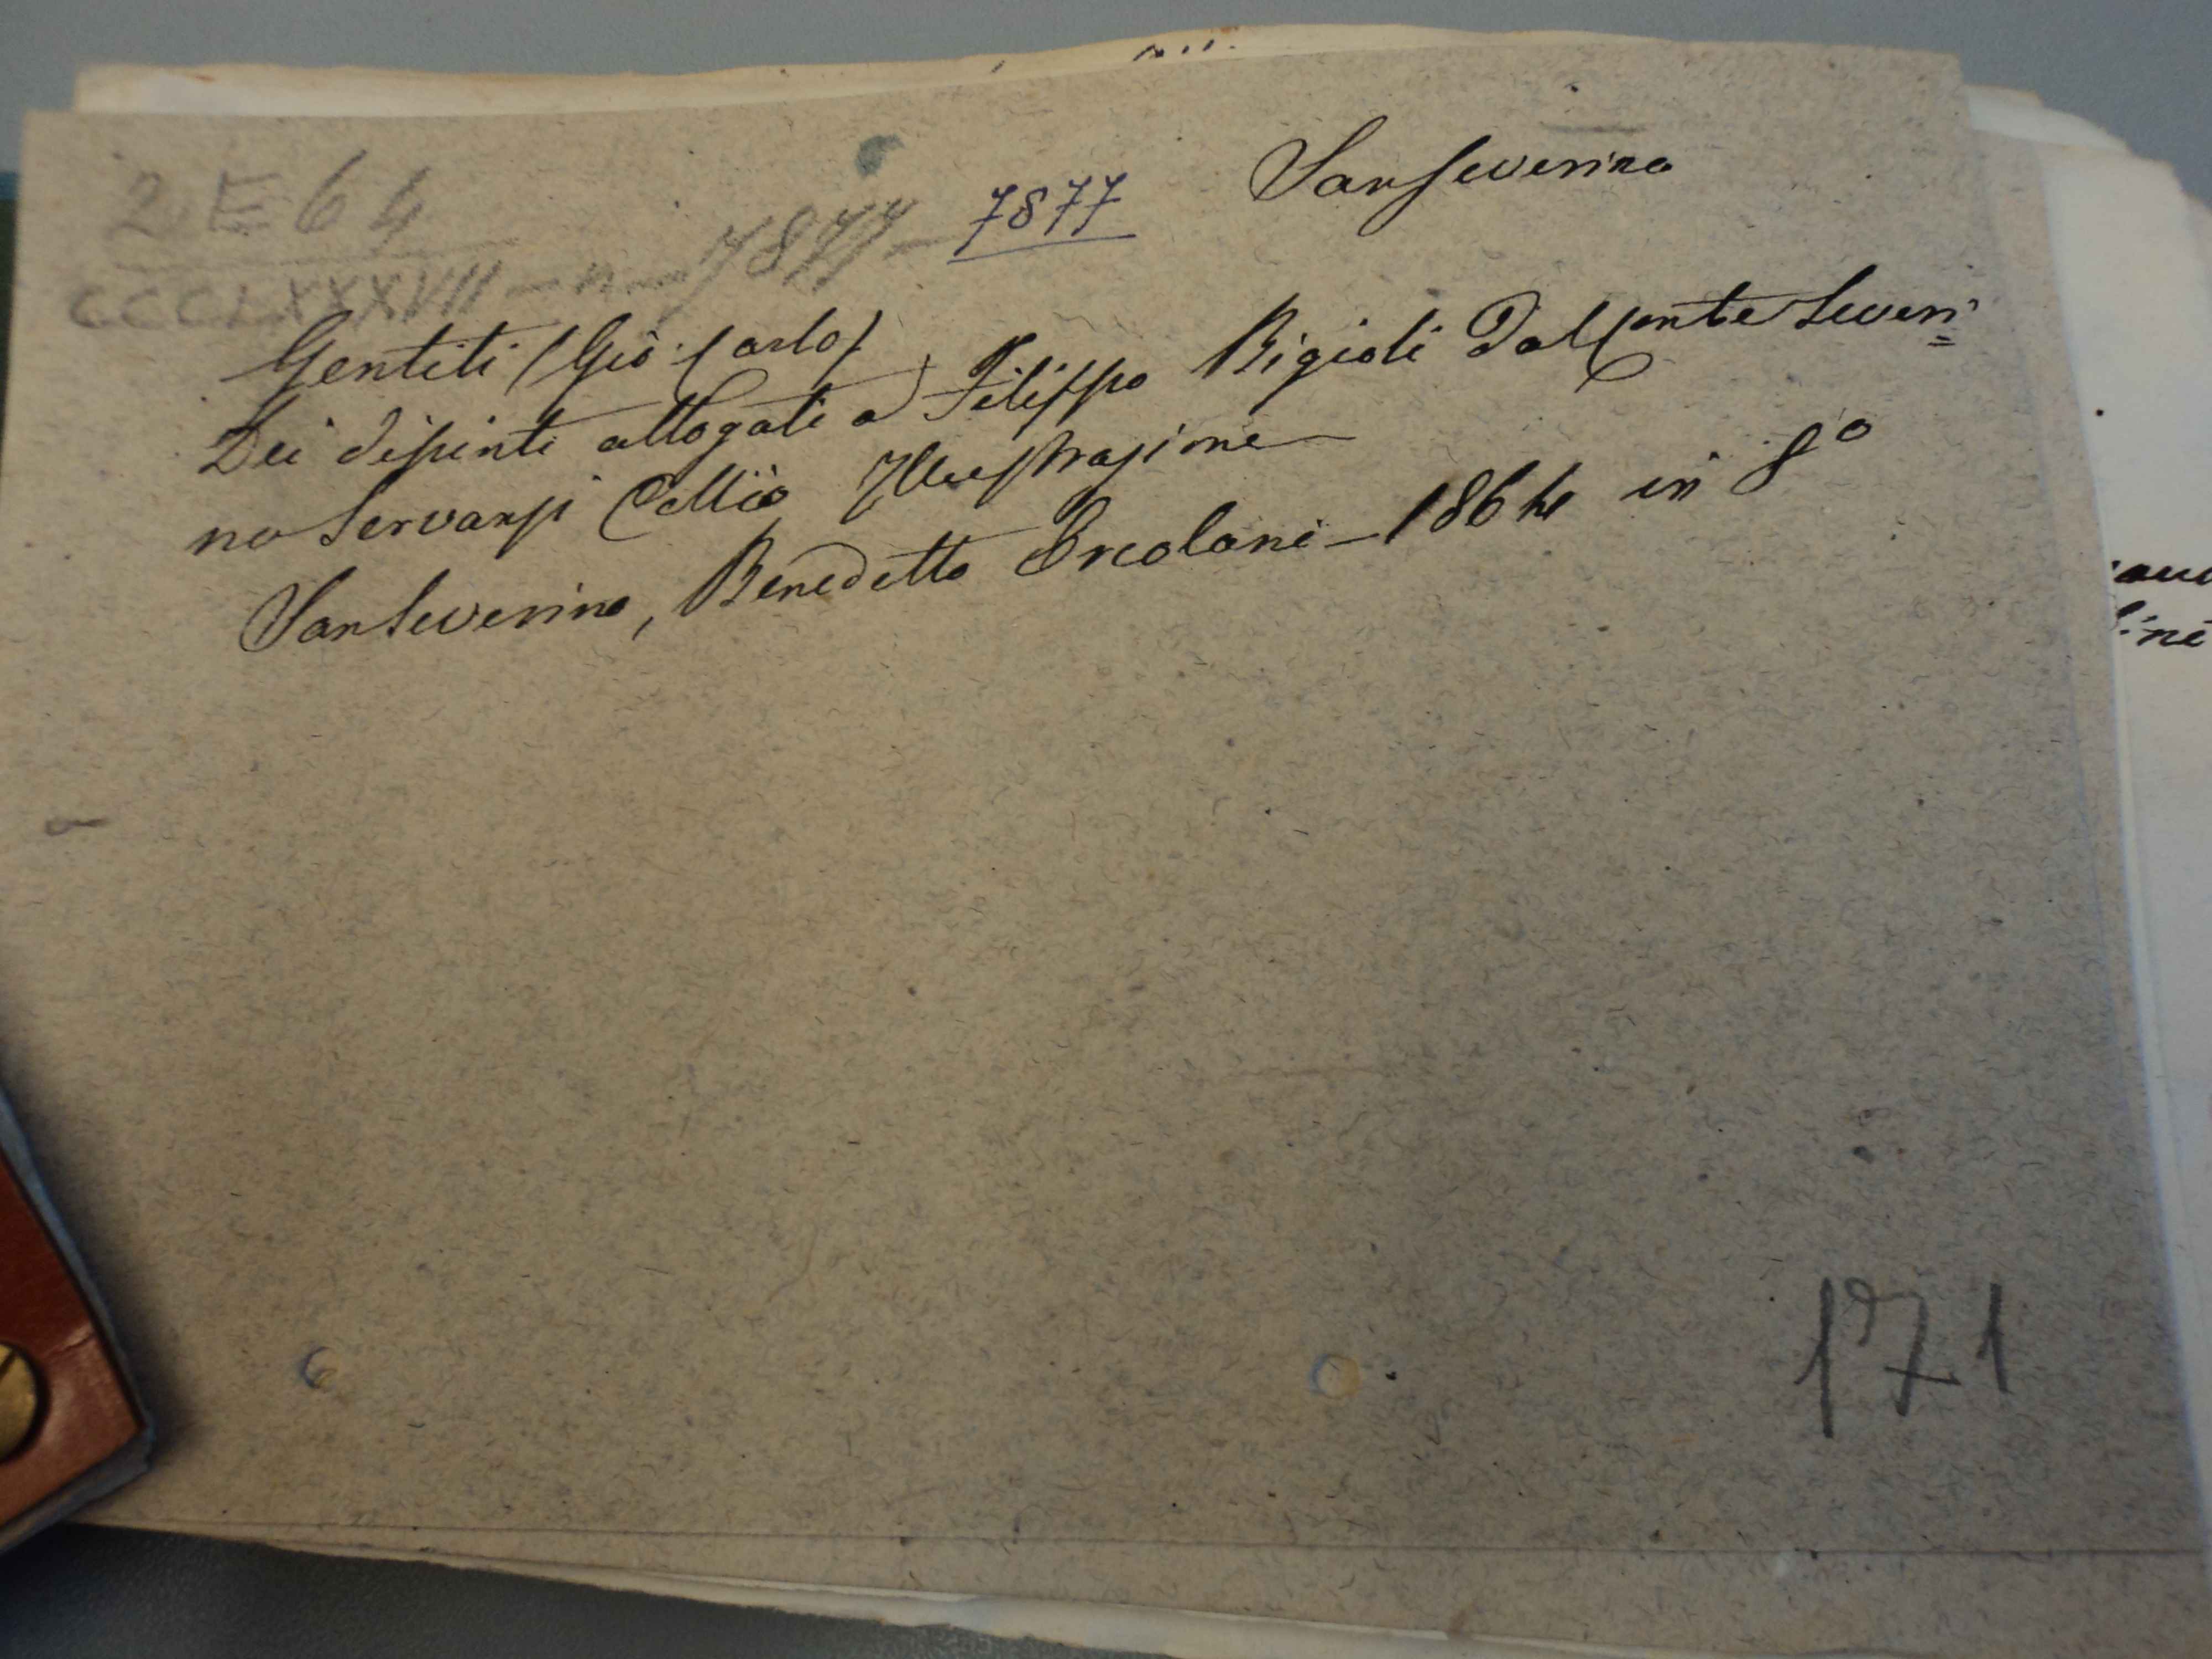 Sanseverino
2 E 64
CCCLXXXVII — n. 7877 — 7877
Gentili (Gio: Carlo)
Dei dipinti allogati a Filippo Bigioli dal Conte Severi=
no Servanzi Collio Illustrazione
Sanseverino, Benedetto Ercolani — 1864 in 8°
171